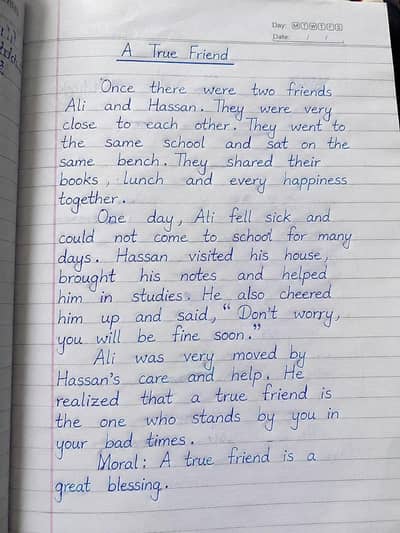 Day: M T W T F S
Date: / /
A True Friend
Once there were two friends
Ali and Hassan. They were very
close to each other. They went to
the same school and sat on the
same bench. They shared their
books, lunch and every happiness
together.
One day, Ali fell sick and
could not come to school for many
days. Hassan visited his house,
brought his notes and helped
him in studies. He also cheered
him up and said, "Don't worry,
you will be fine soon."
Ali was very moved by
Hassan's care and help. He
realized that a true friend is
the one who stands by you in
your bad times.
Moral: A true friend is a
great blessing.